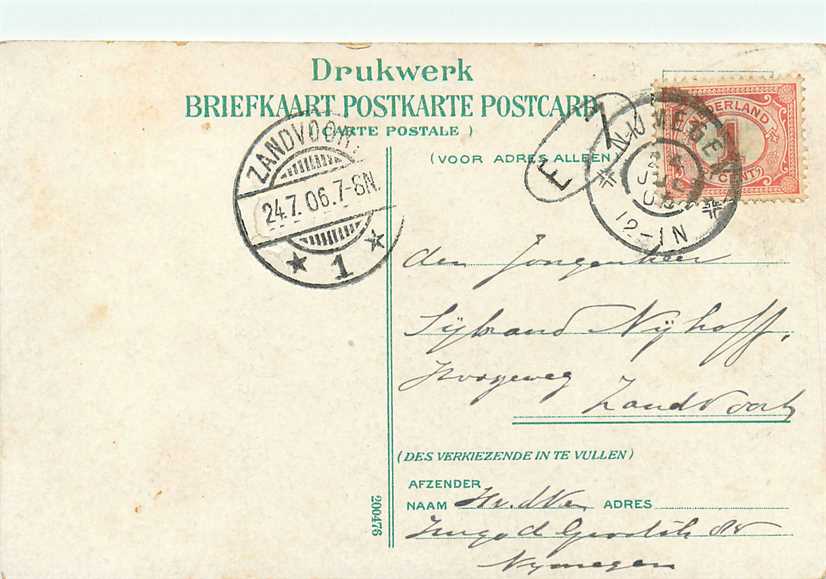 Drukwerk
BRIEFKAART. POSTKARTE POSTCARD
(CARTE POSTALE)
(VOOR ADRES ALLEEN)
ZANDVOORT
24.7.06.7-8N.
1
NIJMEGEN
12-1N
NEDERLAND
1
CENT
F 7
den Jongenheer
Sijbrand Nijhoff,
Hoogeweg
Zandvoort
(DES VERKIEZENDE IN TE VULLEN)
AFZENDER
NAAM ADRES
Nijmegen
200476